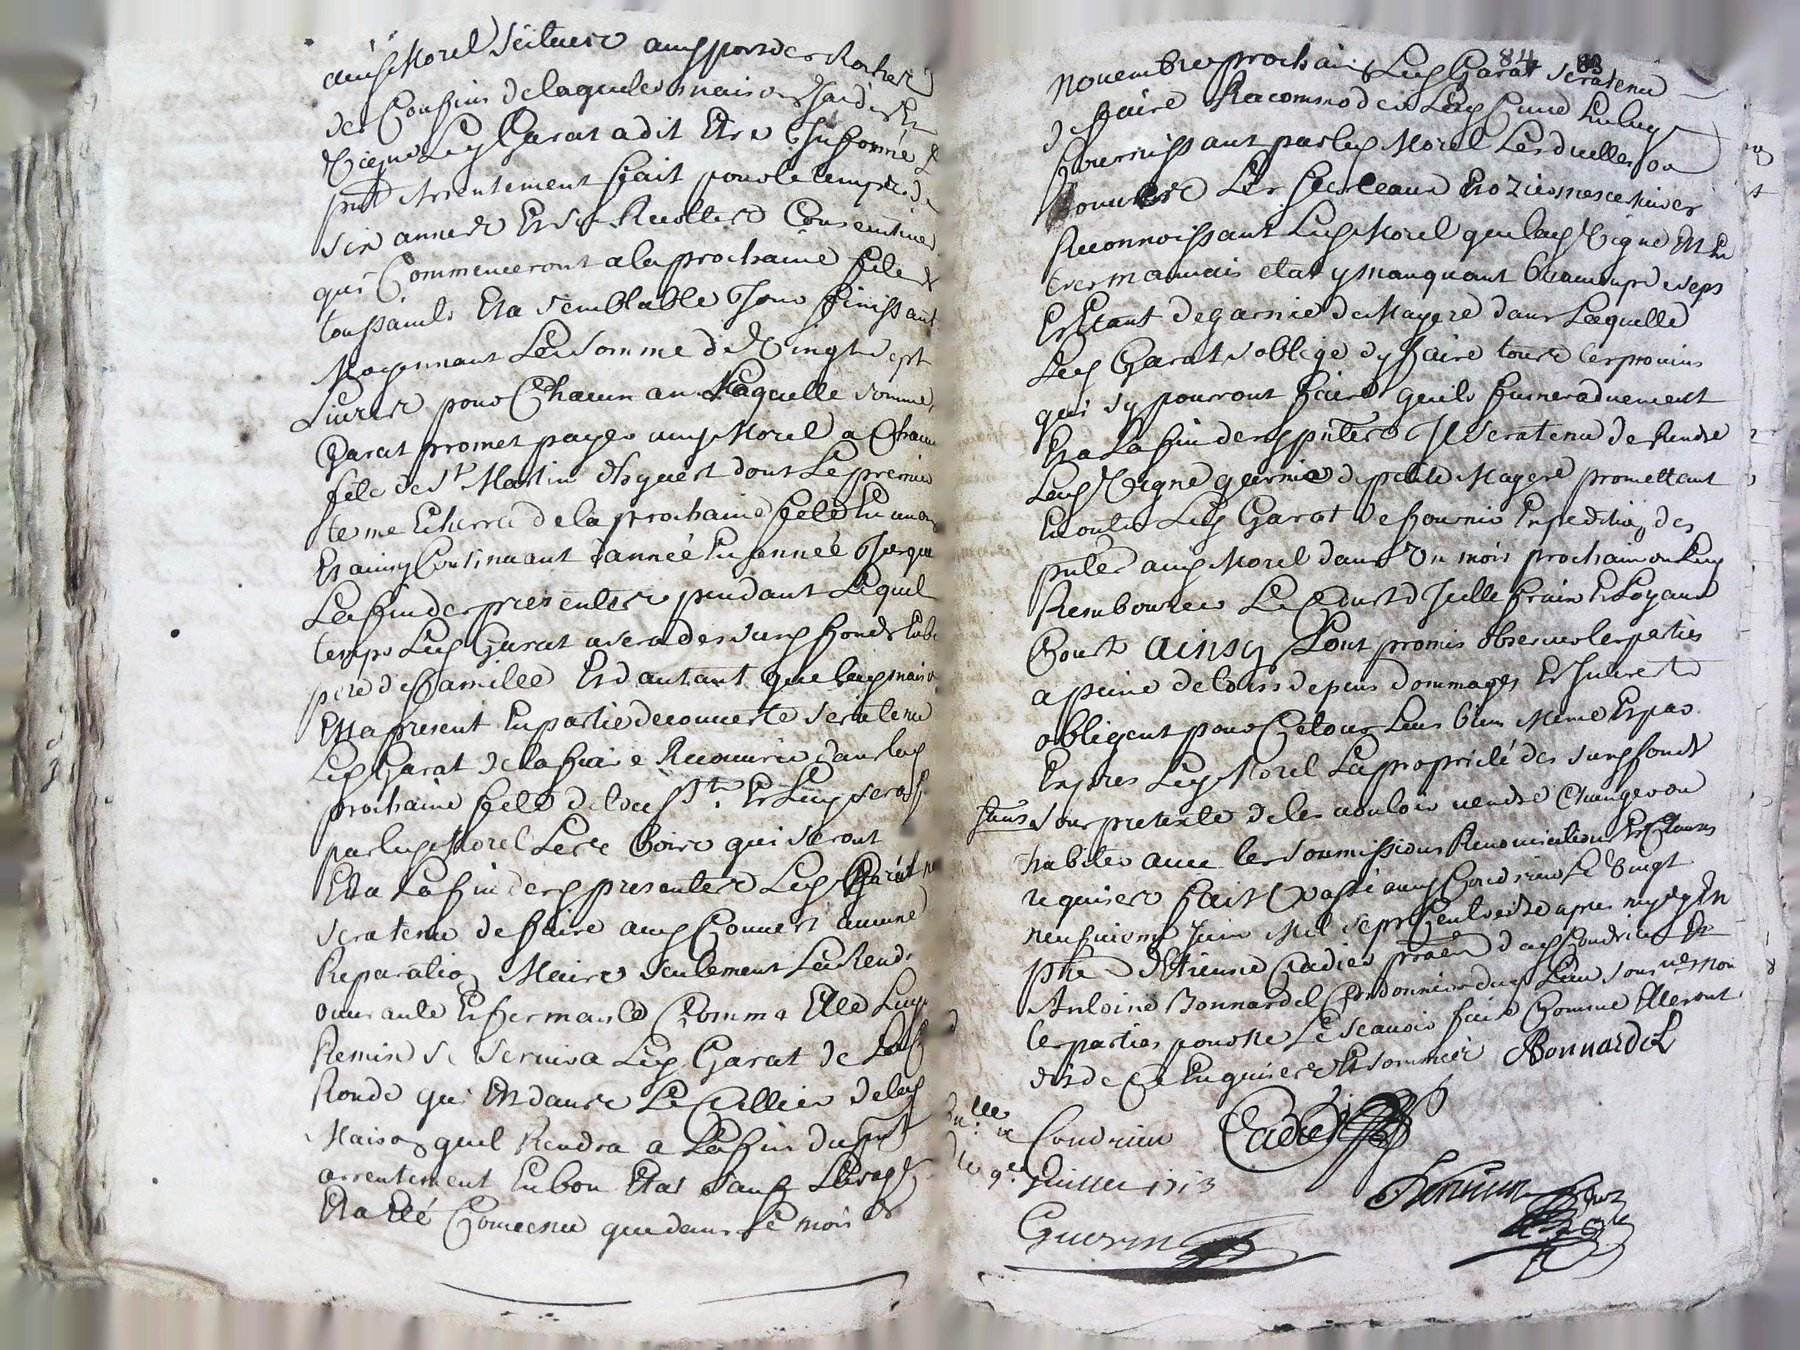 auds Morel scituez aux pords des Roches
de Confins de laquelle maison Jardin Et
Vigne Led Garat a dit Etre Informé Le
pnt Arrentement fait pour le temps de
six années Et six Recoltes Consecutives
qui Commenceront a la prochaine fete de
toussaints Et a semblable Jour finissant
Moyennant La somme de Vingt sept
Livres pour Chacun an Laquelle somme
Garat promet payer aud Morel a Chacune
fete de St Martin d'hyvert dont Le premier
terme Echerra de la prochaine fete En un an
Et ainsy Continuant d'année En année Jusques
La fin des presentes pendant Lequel
temps Led Garat usera des susd fonds En bon
pere de famille Et d'autant que lad maison
Est a present En partie decouverte sera tenu
Led Garat de la faire Recouvrir dans la
prochaine fete de tous Sts Et Luy sera
par led Morel Les Boirs qui seront
Et a La fin desd presentes Led Garat ne
sera tenu de faire aud Couvert aucune
Reparation Mais seulement La Rendre
ouvrante Et fermante Comme Elle Luy
Remise se servira Led Garat de
Ronde qui Est dans Le Cellier de lad
Maison quil Rendra a La fin du pnt
arrentement En bon Etat sauf L'usage
Et a Eté Convenu que dans Le mois de
84
novembre prochain Led Garat sera tenu
de faire Racommoder Lad Cuve En luy
fournissant par led Morel Les douelles ou
Les Cercles Et oziers necessaires
Reconnoissant Led Morel que lad Vigne Est En
tres mauvais etat y manquant beaucoup de seps
Et Etant degarnie de Mayere dans Laquelle
Led Garat s'oblige d'y faire tous les provins
qui s'y pourront faire quil fumera duement
Et a La fin desd pntes Il sera tenu de Rendre
Lad Vigne garnie de petite Mayere promettant
En outre Led Garat de fournir Expedition des
pntes aud Morel dans Un mois prochain ou Luy
Rembourcer Le Coust d'Icelle frais Et Loyaux
Couts ainsy L'ont promis observer les parties
a peine de tous depens dommages Et Interets
obligent pour Ce tous Leurs biens Meme Et par
Expres Led Morel La proprieté des susd fonds
sans sous pretexte de les vouloir vendre Changer ou
habiter avec les soumissions Renonciations Et Clauses
requises fait Et Passé aud Condrieu Le Vingt
neufvieme Juin Mil sept Cent treize apres midy En
pnce d'Etienne Cadier praticien dud Condrieu Et
Antoine Bonnardel Cordonnier dud Lieu sousnes non
les parties pour ne Le scavoir faire Comme Elles ont
dit de Ce Enquises Et sommées Bonnardel
Condrieu Cadier
Juillet 1713
Guerin